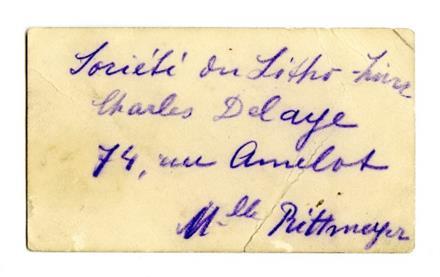 Société du Litho
Charles Delaye
74, rue Amelot
Mlle Rittmeyer